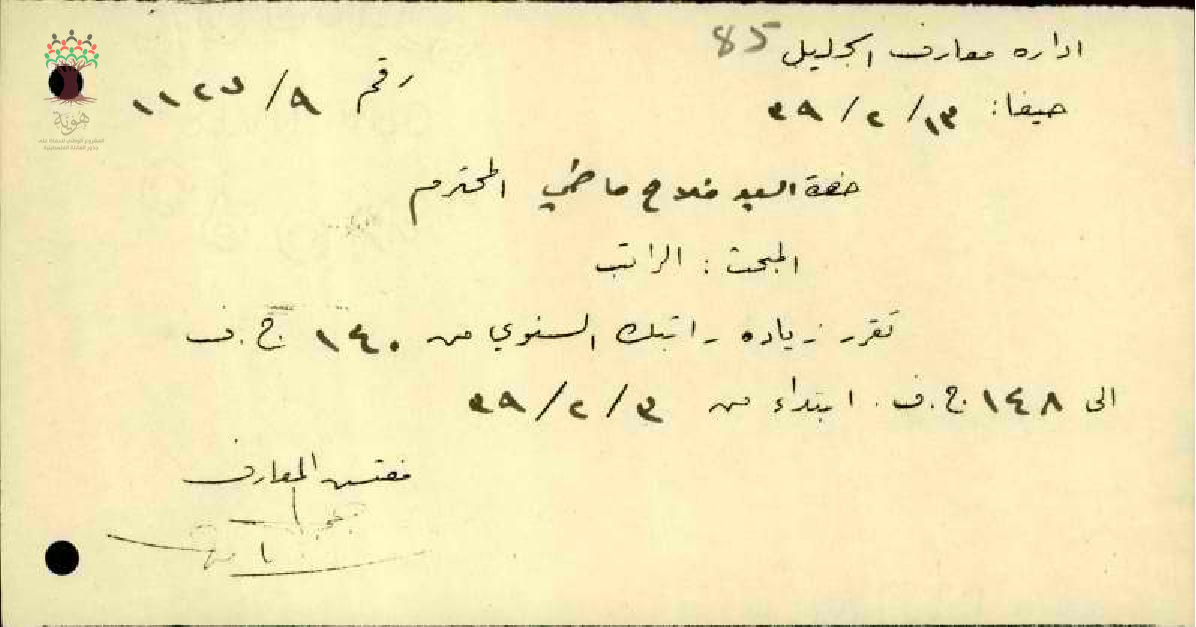 اداره معارف الجليل 85
حيفا: ١٣/٢/٣٩
رقم ٩/١١٢٧
حضرة السيد فلاح ماضي المحترم
المبحث: الراتب
تقرر زياده راتبك السنوي من ١٤٠ ج.ف
الى ١٤٨ ج.ف. ابتداء من ٣/٢/٣٩
مفتش المعارف
هوية